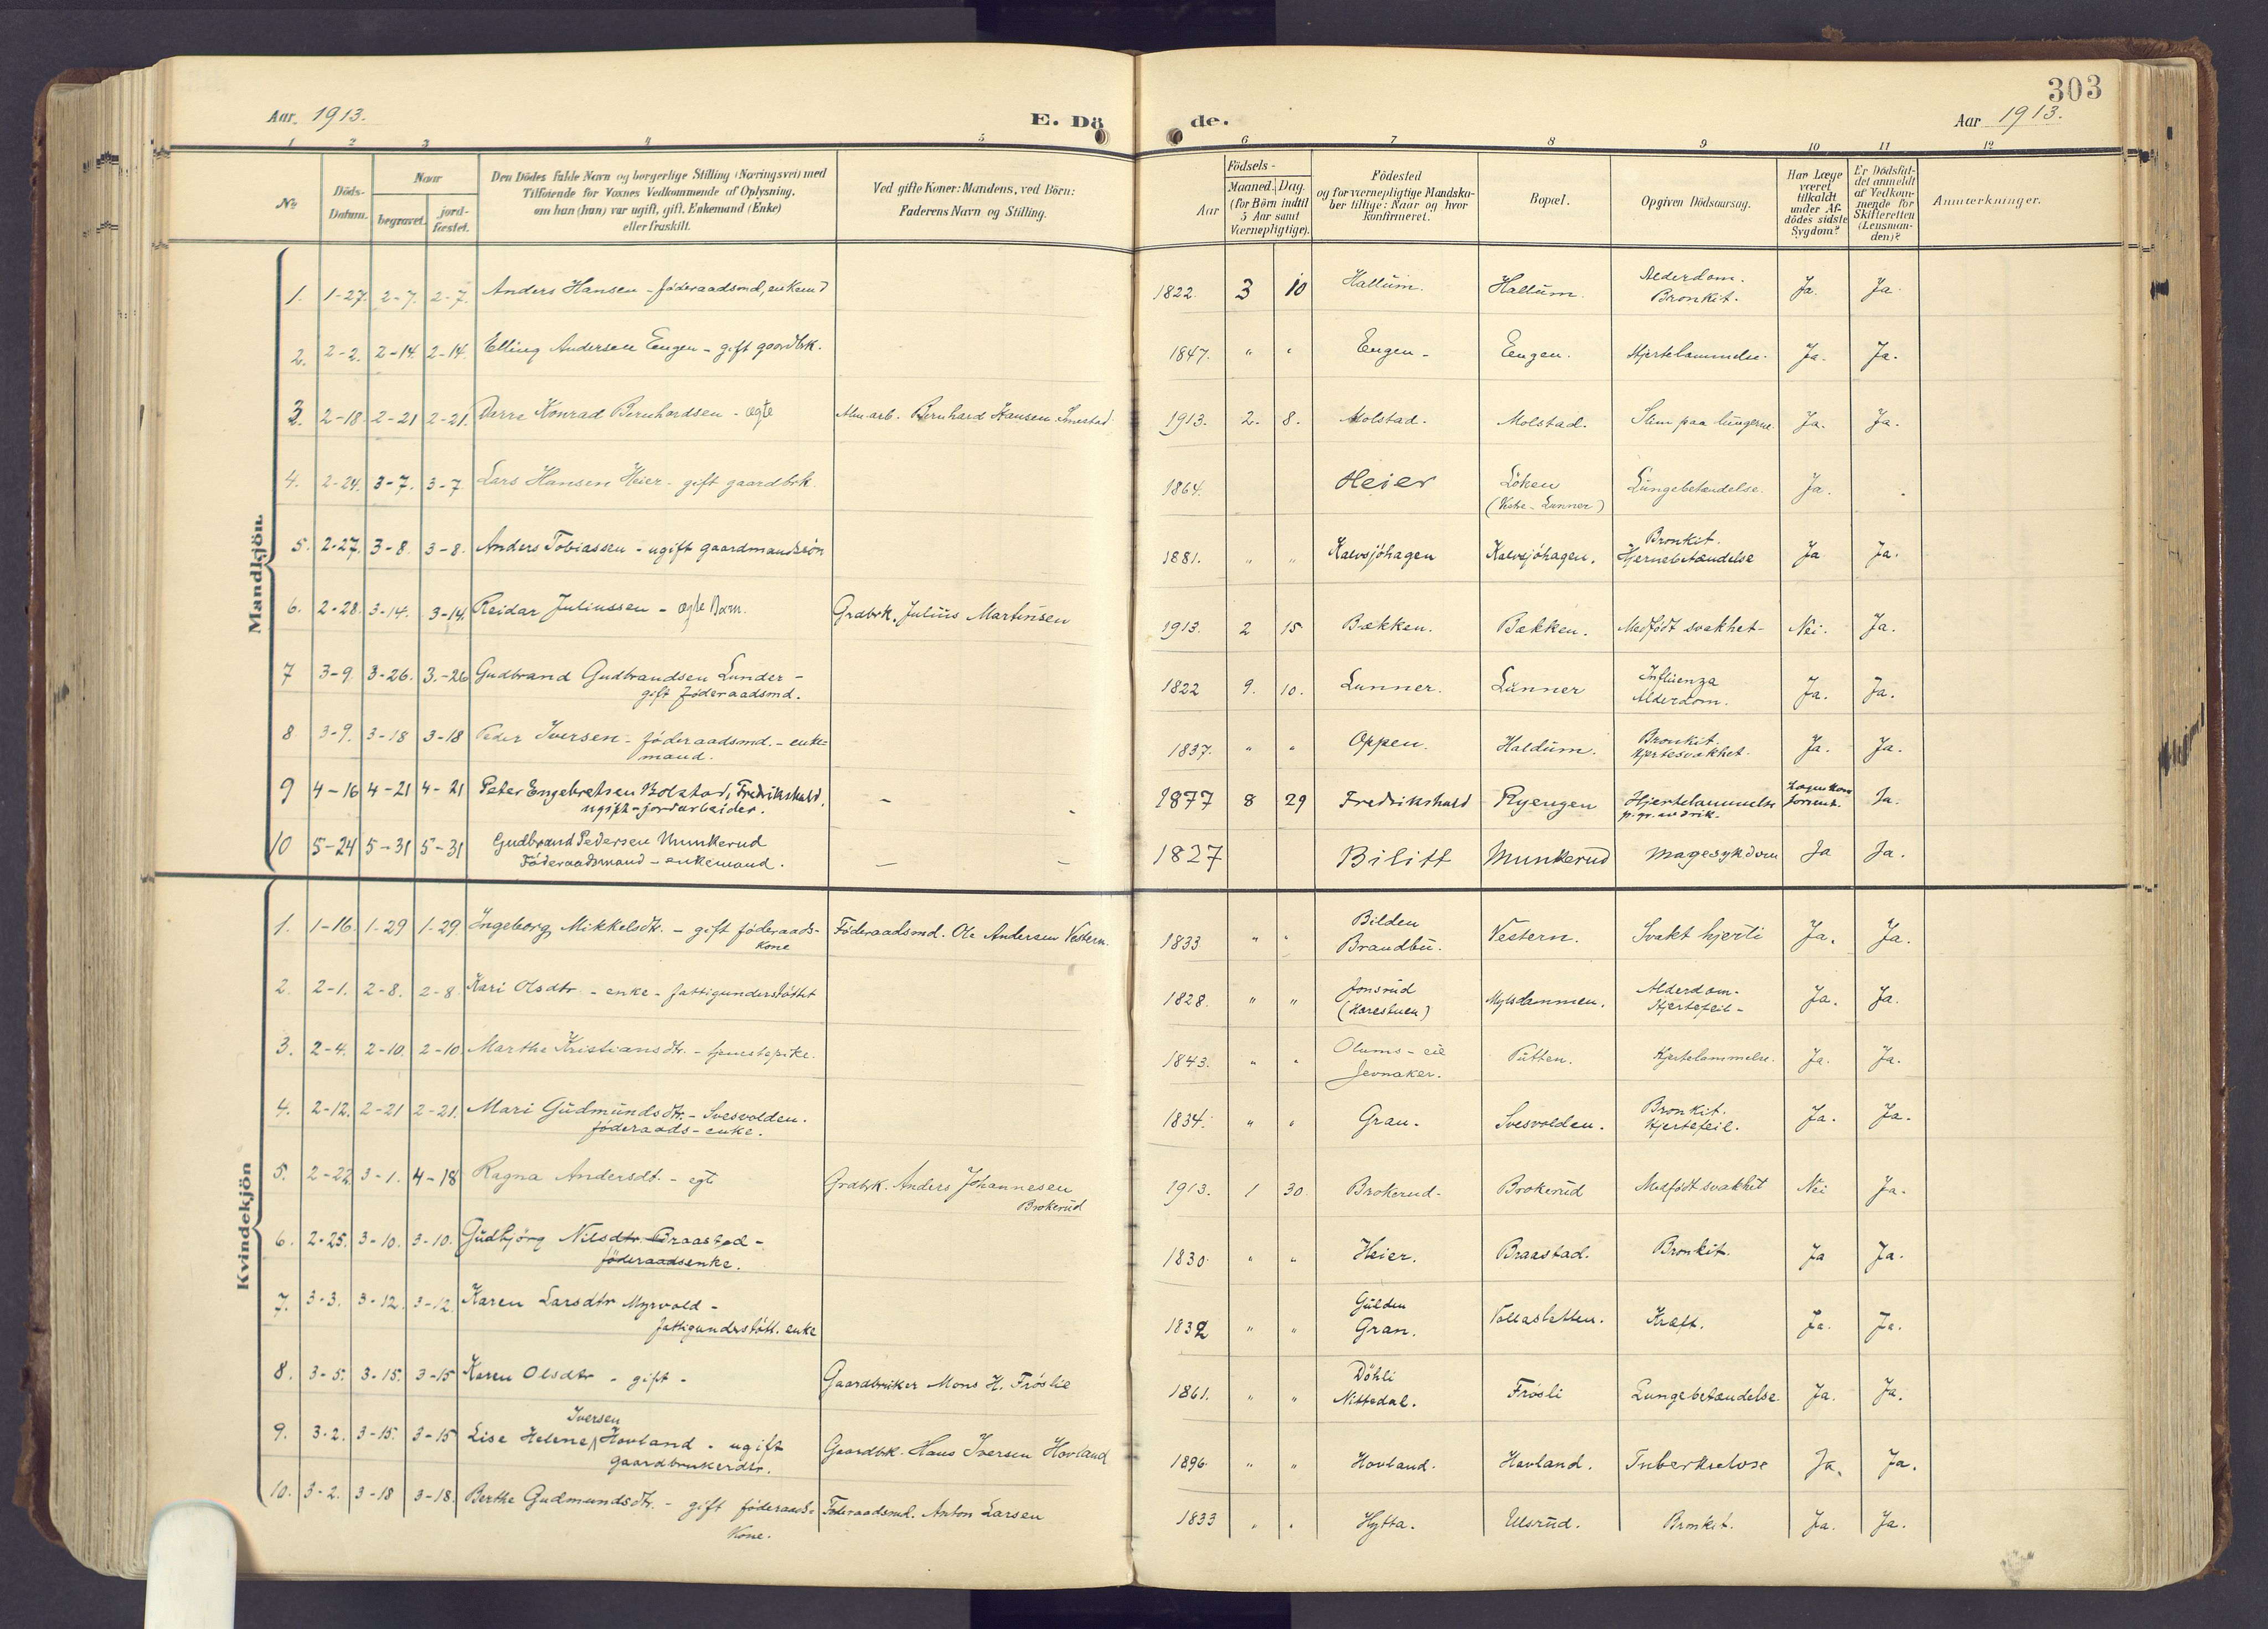 303
Aar 1913. E. Dö de. Aar 1913.
1 2 3 4 5 6 7 8 9 10 11 12
No
Döds-Datum.
Naar
begravet.
jord-fæstet.
Den Dödes fulde Navn og borgerlige Stilling (Næringsvei) med
Tilföiende for Voxnes Vedkommende af Oplysning,
om han (hun) var ugift, gift, Enkemand (Enke)
eller fraskilt.
Ved gifte Koner: Mandens, ved Börn:
Faderens Navn og Stilling.
Aar
Födsels-
Maaned. Dag.
(for Börn indtil
5 Aar samt
Værnepligtige).
Födested
og for værnepligtige Mandska-
ber tillige: Naar og hvor
Konfirmeret.
Bopæl.
Opgiven Dödsaarsag.
Har Læge
været
tilkaldt
under Af-
dödes sidste
Sygdom?
Er Dödsfal-
det anmeldt
af Vedkom-
mende for
Skifteretten
(Lensman-
den)?
Anmærkninger.
Mandkjön.
1. 1-27. 2-7. 2-7. Anders Hansen - föderaadsmd, enkemd 1822. 3 10 Hallum. Hallum. Alderdom. Bronkit. Ja. Ja.
2. 2-2. 2-14. 2-14. Elling Andersen Eengen - gift gaardbrk. 1847. " " Engen - Eengen. Hjertelammelse. Ja. Ja.
3. 2-18. 2-21 2-21. Konrad Bernhardsen - ægte Alm. arb. Bernhard Hansen Smestad. 1913. 2. 8. Molstad. Molstad. Slim paa lungerne. Ja. Ja.
4. 2-24. 3-7. 3-7. Lars Hansen Heier - gift gaardbrk. 1864. Heier Löken (Vestre-Lunner) Lungebetændelse. Ja.
5. 2-27. 3-8. 3-8. Anders Tobiassen - ugift gaardmandssön 1881. " " Kalvsjöhagen Kalvsjöhagen. Bronkit. Hjernebetændelse Ja Ja.
6. 2-28. 3-14. 3-14. Reidar Juliussen - ægte barn. Grdbrk. Julius Martinsen 1913. 2 15 Bækken. Bækken. Medfödt svakhet - Nei. Ja.
7 3-9. 3-26. 3-26 Gudbrand Gudbrandsen Lunder -
gift föderaadsmd. 1822 9. 10. Lunner. Lunner Influenza Alderdom. Ja. Ja.
8. 3-9. 3-18 3-18 Peder Iversen - föderaadsmd. - enke-
mand. 1837. " " Oppen. Haldum. Bronkit. Hjertesvakhet. Ja. Ja.
9 4-16 4-21 4-21 Peter Engebretsen Bolstad, Fredrikshald,
ugift - jordarbeider. - - 1877 8 29 Fredrikshald Ryengen Hjertelammelse p. gr. av drik. Lægen kom forsent. Ja.
10 5-24 5-31 5-31 Gudbrand Pedersen Munkerud
Föderaadsmand - enkemand. - - 1827 Bilitt Munkerud Magesykdom Ja Ja.
Kvindekjön
1. 1-16. 1-29 1-29 Ingeborg Mikkelsdtr. - gift föderaads-
kone Föderaadsmd. Ole Andersen Vestern. 1833 " " Bilden Brandbu. Vestern. Svakt hjerte Ja. Ja.
2. 2-1. 2-8. 2-8. Kari Olsdtr - enke - fattigunderstöttet 1828. " " Jonsrud (Harestuen) Mylsdammen. Alderdom - Hjertefeil - Ja. Ja.
3. 2-4. 2-10. 2-10. Marthe Kristiansdtr. - tjenestepike. 1843. " " Olums-eie Jevnaker. Putten. Hjertelammelse. Ja. Ja.
4. 2-12. 2-21 2-21. Mari Gudmundsdtr. - Svesvolden.
föderaads-enke. 1834. " " Gran. Svesvolden. Bronkit. Hjertefeil. Ja. Ja.
5. 2-22 3-1. 4-18 Ragna Andersdt. - egte Grdbrk. Anders Johannesen
Brokerud 1913. 1 30. Brokerud - Brokerud Medfödt svakhet Nei Ja.
6. 2-25. 3-10. 3-10. Gudbjörg Nilsdtr. Braastad -
föderaadsenke. 1830. " " Heier. Braastad. Bronkit. Ja Ja.
7. 3-3. 3-12. 3-12. Karen Larsdtr Myrvold -
fattigunderstött. enke 1832 " " Gulden Gran. Vollasletten. Kræft. Ja. Ja.
8. 3-5. 3-15. 3-15 Karen Olsdtr - gift - Gaardbruker Mons H. Fröslie 1861. " " Döhli Nittedal. Frösli Lungebetændelse Ja. Ja.
9. 3-2. 3-15. 3-15 Lise Helene Iversen Hovland - ugift
gaardbrukerdtr. Gaardbrk. Hans Iversen Hovland 1896. " " Hovland. Hovland. Tuberkulose Ja. Ja.
10. 3-2. 3-18 3-18. Berthe Gudmundsdtr. - gift föderaads-
kone. Föderaadsmd. Anton Larsen 1833 " " Hytta. Ulsrud. Bronkit. Ja. Ja.